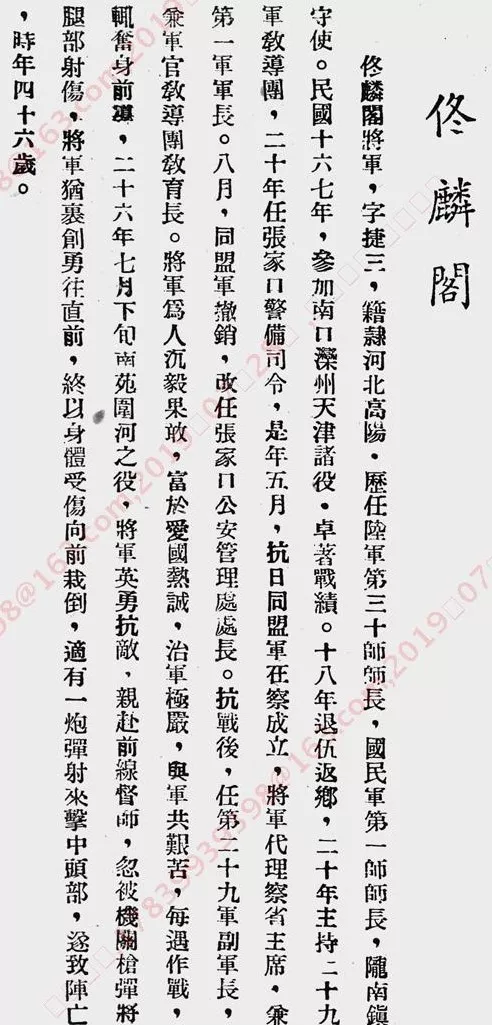 佟麟閣
佟麟閣將軍，字捷三，籍隸河北高陽．歷任陸軍第三十師師長，國民軍第一師師長，隴南鎮
守使。民國十六七年，參加南口灤州天津諸役．卓著戰績。十八年退伍返鄉，二十年主持二十九
軍教導團，二十年任張家口警備司令，是年五月，抗日同盟軍在察成立，將軍代理察省主席．兼
第一軍軍長。八月，同盟軍撤銷，改任張家口公安管理處處長。抗戰後，任第二十九軍副軍長，
兼軍官教導團教育長。將軍爲人沉毅果敢，富於愛國熱誠，治軍極嚴，與軍共艱苦，每遇作戰，
輒奮身前導，二十六年七月下旬南苑團河之役，將軍英勇抗敵．親赴前線督師，忽被機關槍彈將
腿部射傷，將軍猶裹創勇往直前，終以身體受傷向前栽倒，適有一炮彈射來擊中頭部，遂致陣亡
，時年四十六歲。